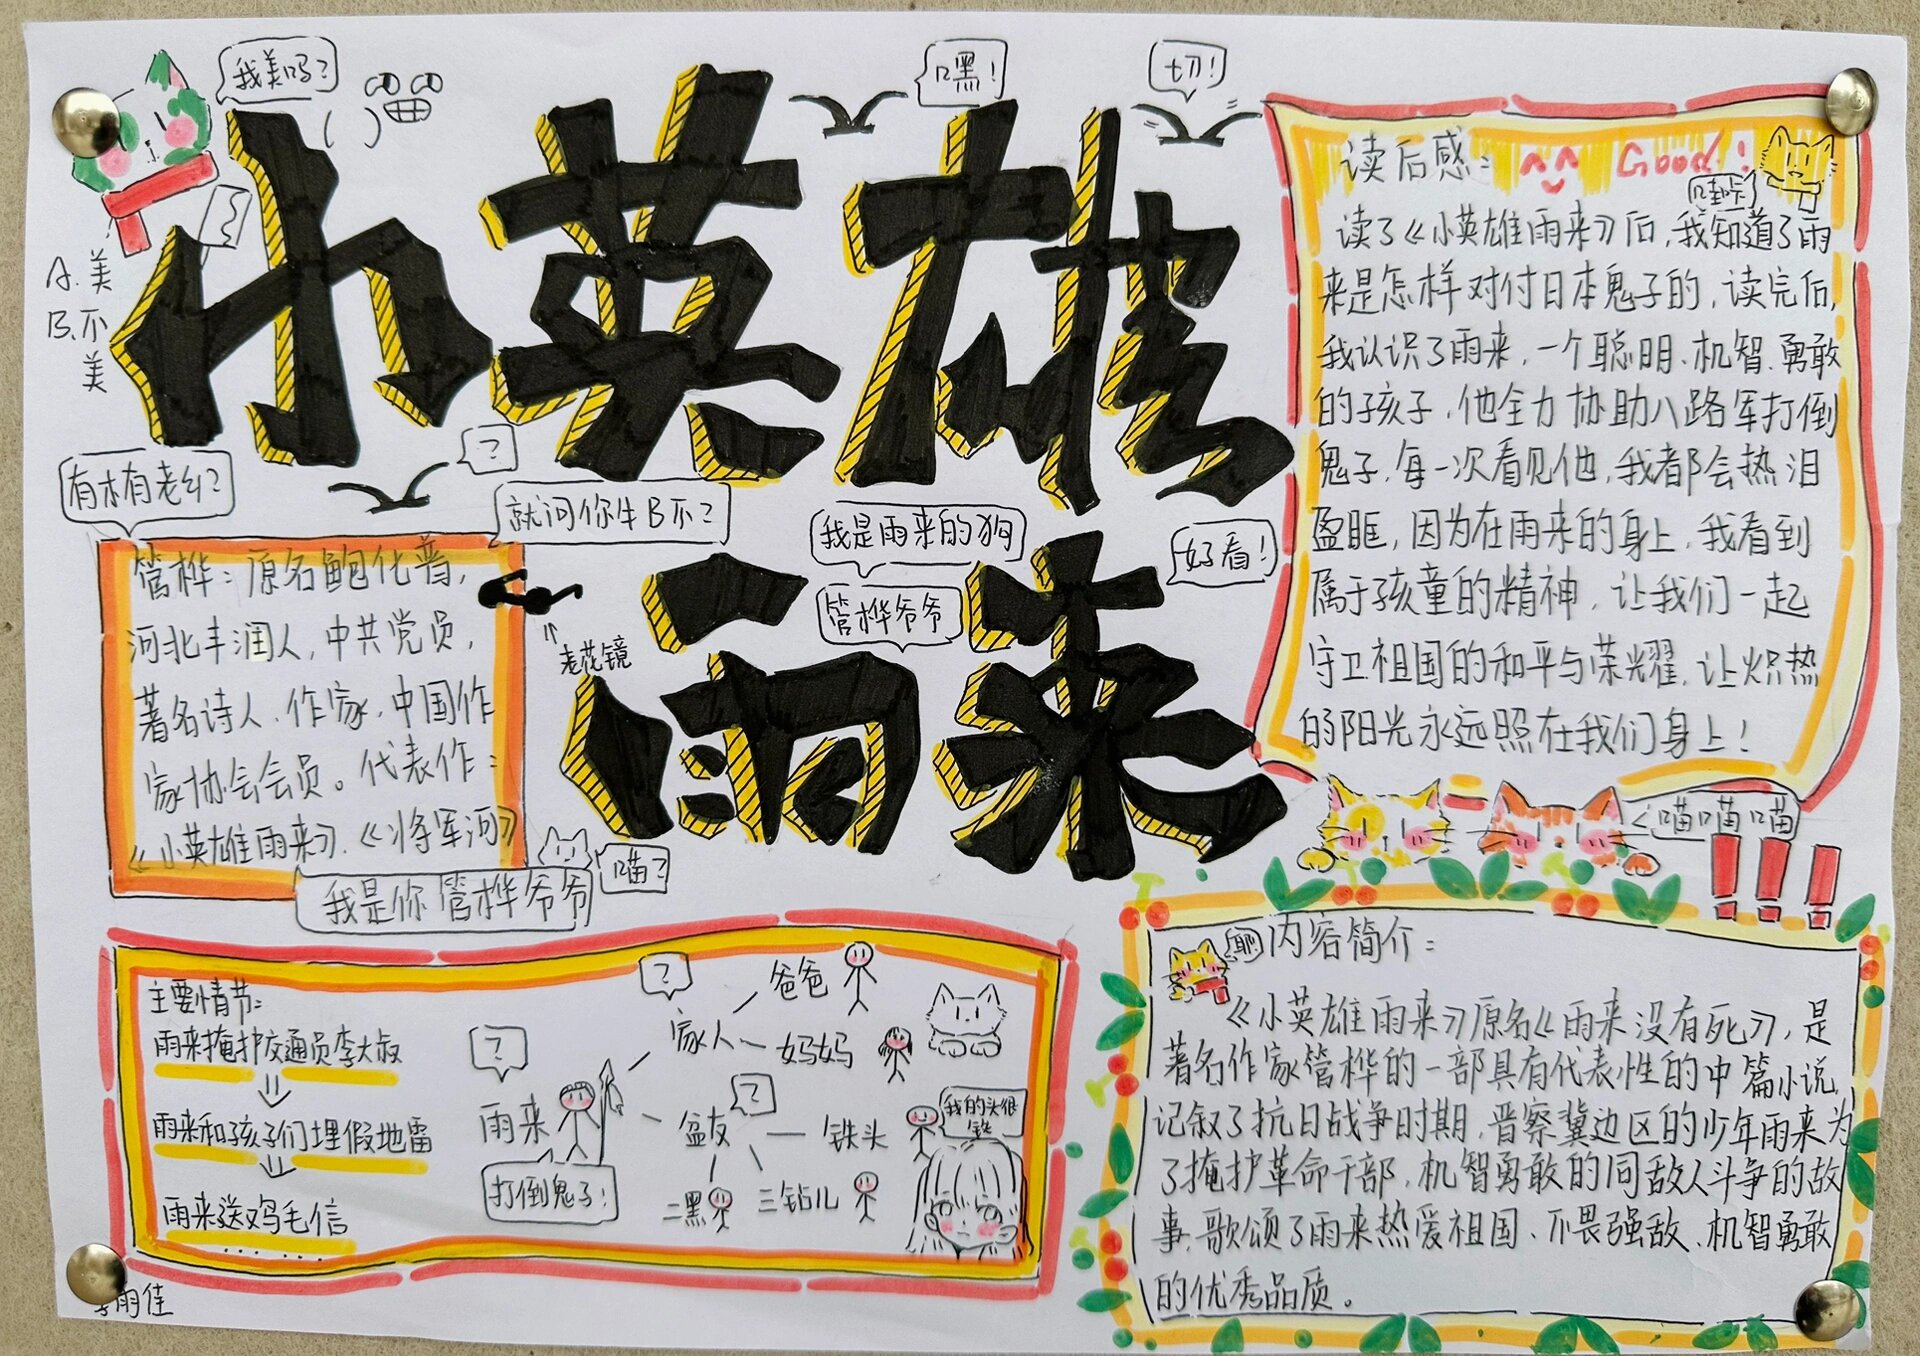 我美吗?
A.美
B.不美
嘿!
切!
小英雄
雨来
有木有老乡?
?
就问你牛B不?
我是雨来的狗
管桦爷爷
好看!
老花镜
管桦:原名鲍化普,
河北丰润人,中共党员,
著名诗人、作家,中国作
家协会会员。代表作:
《小英雄雨来》、《将军河》
喵?
我是你管桦爷爷
读后感:
Good!
哇咔
读了《小英雄雨来》后,我知道了雨
来是怎样对付日本鬼子的,读完后,
我认识了雨来,一个聪明、机智、勇敢
的孩子,他全力协助八路军打倒
鬼子,每一次看见他,我都会热泪
盈眶,因为在雨来的身上,我看到
属于孩童的精神,让我们一起
守卫祖国的和平与荣耀,让炽热
的阳光永远照在我们身上!
喵喵喵
!!!
主要情节:
雨来掩护交通员李大叔
雨来和孩子们埋假地雷
雨来送鸡毛信
......
?
雨来
打倒鬼子!
?
家人
爸爸
妈妈
?
盆友
铁头
我的头很
铁
二黑
三钻儿
内容简介:
《小英雄雨来》原名《雨来没有死》,是
著名作家管桦的一部具有代表性的中篇小说,
记叙了抗日战争时期,晋察冀边区的少年雨来为
了掩护革命干部,机智勇敢的同敌人斗争的故
事,歌颂了雨来热爱祖国、不畏强敌、机智勇敢
的优秀品质。
雨佳